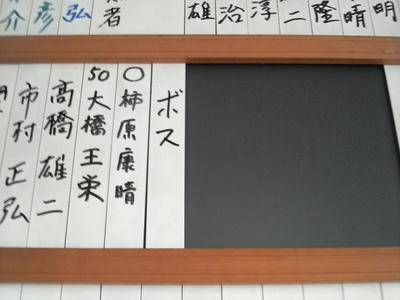 明
晴
隆
二
淳
治
雄
者
弘
彦
介
ボス
○柿原康晴
50大橋王栄
高橋雄二
市村正弘